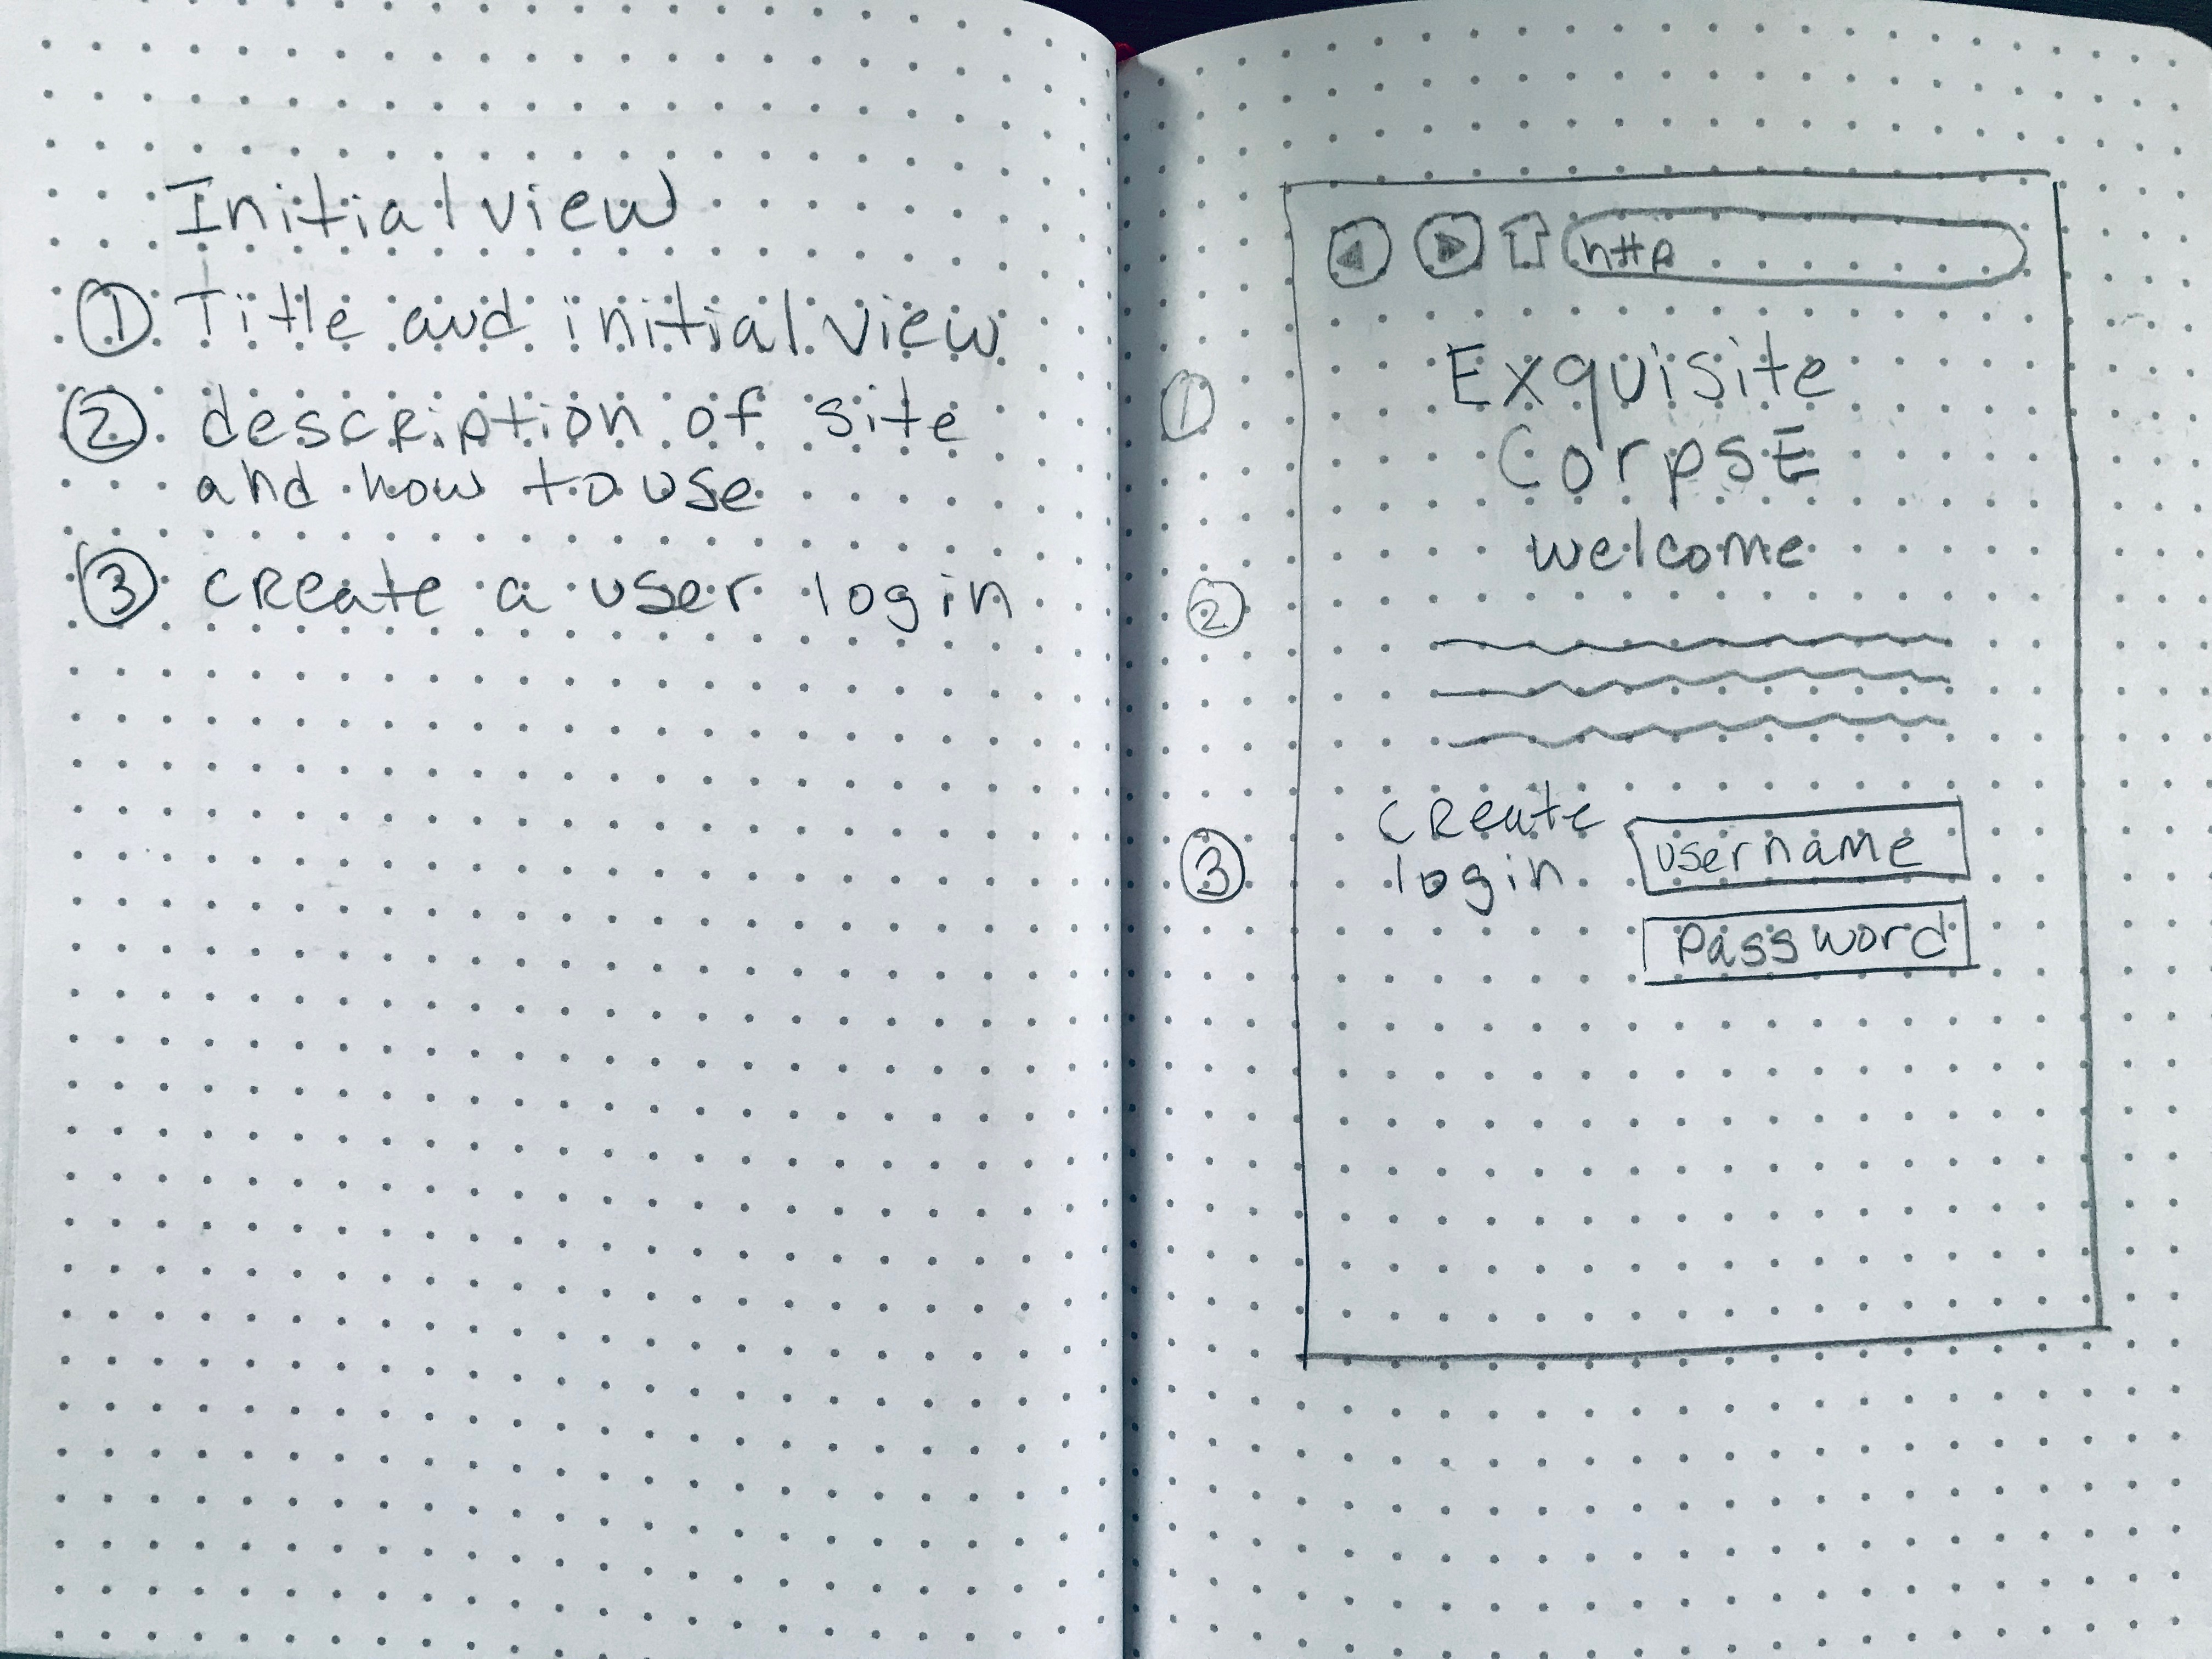 Initial view
① Title and initial view
② description of site
and how to use
③ create a user login
http
① Exquisite
CorpsE
welcome
②
③ create
login
username
password